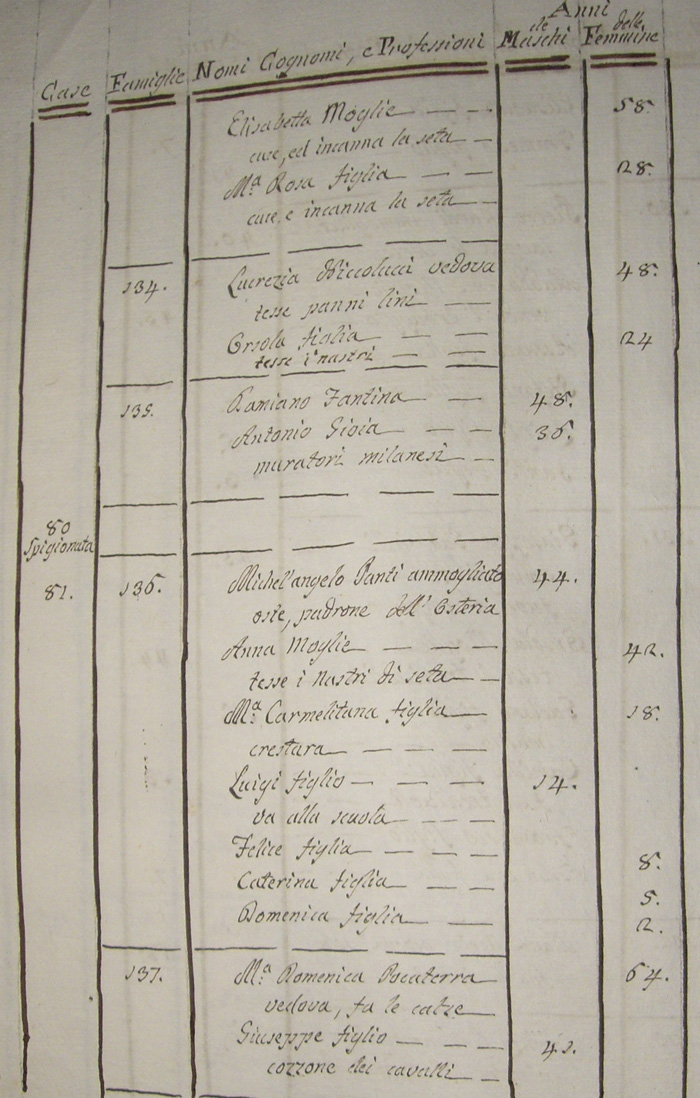 Anni
Case Famiglie Nomi Cognomi, e Professioni de Maschi delle Femmine
Elisabetta Moglie — — 58.
cuce, ed incanna la seta —
M.ª Rosa figlia — — 28.
cuce, e incanna la seta —
134. Lucrezia Niccolucci vedova 48.
tesse panni lini — —
Orsola figlia — — 24
tesse i nastri — —
135. Damiano Fantina — — 48.
Antonio Gioia — — 36.
muratori milanesi — —
80
Spigionata
81. 136. Michel'angelo Santi ammogliato 44.
oste, padrone dell' Osteria
Anna Moglie — — — 42.
tesse i Nastri di seta — —
M.ª Carmelitana figlia — 18.
crestara — — — —
Luigi figlio — — — 14.
va alla scuola — — —
Felice figlia — — — 8.
Caterina figlia — — 5.
Domenica figlia — — 2.
137. M.ª Domenica Bocaterra 64.
vedova, fa le calze —
Giuseppe figlio — — 41.
cozzone dei cavalli — —